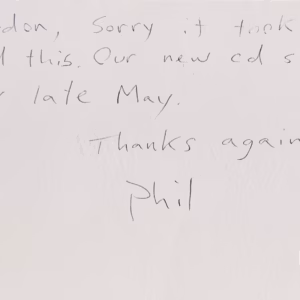 don, Sorry it took
this. Our new cd s
late May.
Thanks again
Phil